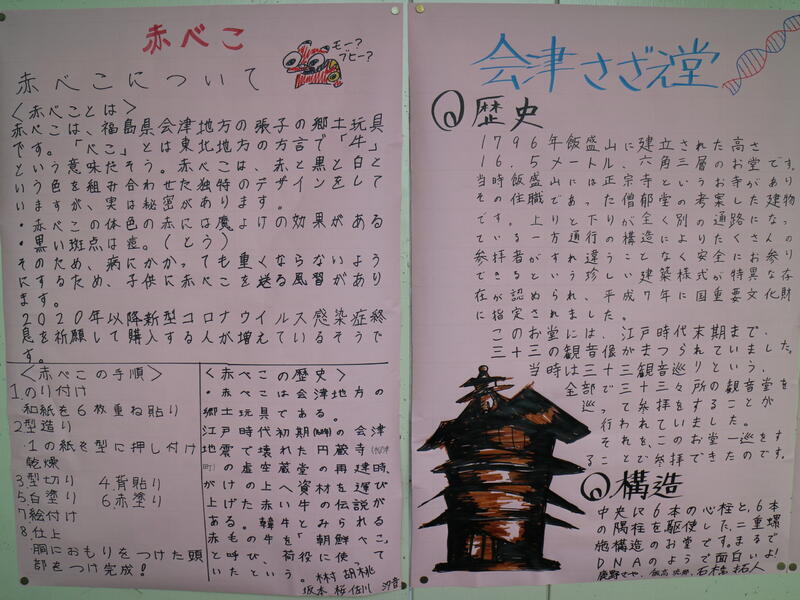 赤べこ
モー?
ブヒー?
赤べこについて
<赤べことは>
赤べこは、福島県会津地方の張子の郷土玩具
です。「べこ」とは東北地方の方言で「牛」
という意味だそう。赤べこは、赤と黒と白と
いう色を組み合わせた独特のデザインをして
いますが、実は秘密があります。
・赤べこの体色の赤には魔よけの効果がある
・黒い斑点は痘。(とう)
そのため、病にかかっても重くならないよう
にするため、子供に赤べこを送る風習があり
ます。
2020年以降新型コロナウイルス感染症終
息を祈願して購入する人が増えているそうで
す。
<赤べこの手順>
1.のり付け
和紙を6枚重ね貼り
2型造り
・1の紙を型に押し付け
乾燥
3型切り 4.背貼り
5白塗り 6赤塗り
7絵付け
8.仕上
・胴におもりをつけた頭
部をつけ完成!
<赤べこの歴史>
・赤べこは会津地方の
郷土玩具である。
江戸時代初期の会津
地震で壊れた円蔵寺
の虚空蔵堂の再建時、
がけの上へ資材を運び
上げた赤い牛の伝説が
ある。韓牛とみられる
赤毛の牛を「朝鮮べこ」
と呼び、荷役に使って
いたという。
坂本 桜 佐川
会津さざえ堂
歴史
1796年飯盛山に建立された高さ
16.5メートル、六角三層のお堂です。
当時飯盛山には正宗寺というお寺があり
その住職であった僧郁堂の考案した建物
です。上りと下りが全く別の通路になっ
ている一方通行の構造によりたくさんの
参拝者がすれ違うことなく安全にお参り
できるという珍しい建築様式が特異な存
在が認められ、平成7年に国重要文化財
に指定されました。
このお堂には、江戸時代末期まで、
三十三の観音像がまつられていました。
当時は三十三観音巡りという、
全部で三十三ヶ所の観音堂を
巡って参拝をすることが
行われていました。
それを、このお堂一巡をす
ることで参拝できたのです。
構造
中央に6本の心柱と、6本
の隅柱を駆使した、二重螺
施構造のお堂です。まるで
DNAのようで面白いよ!
石本 拓人